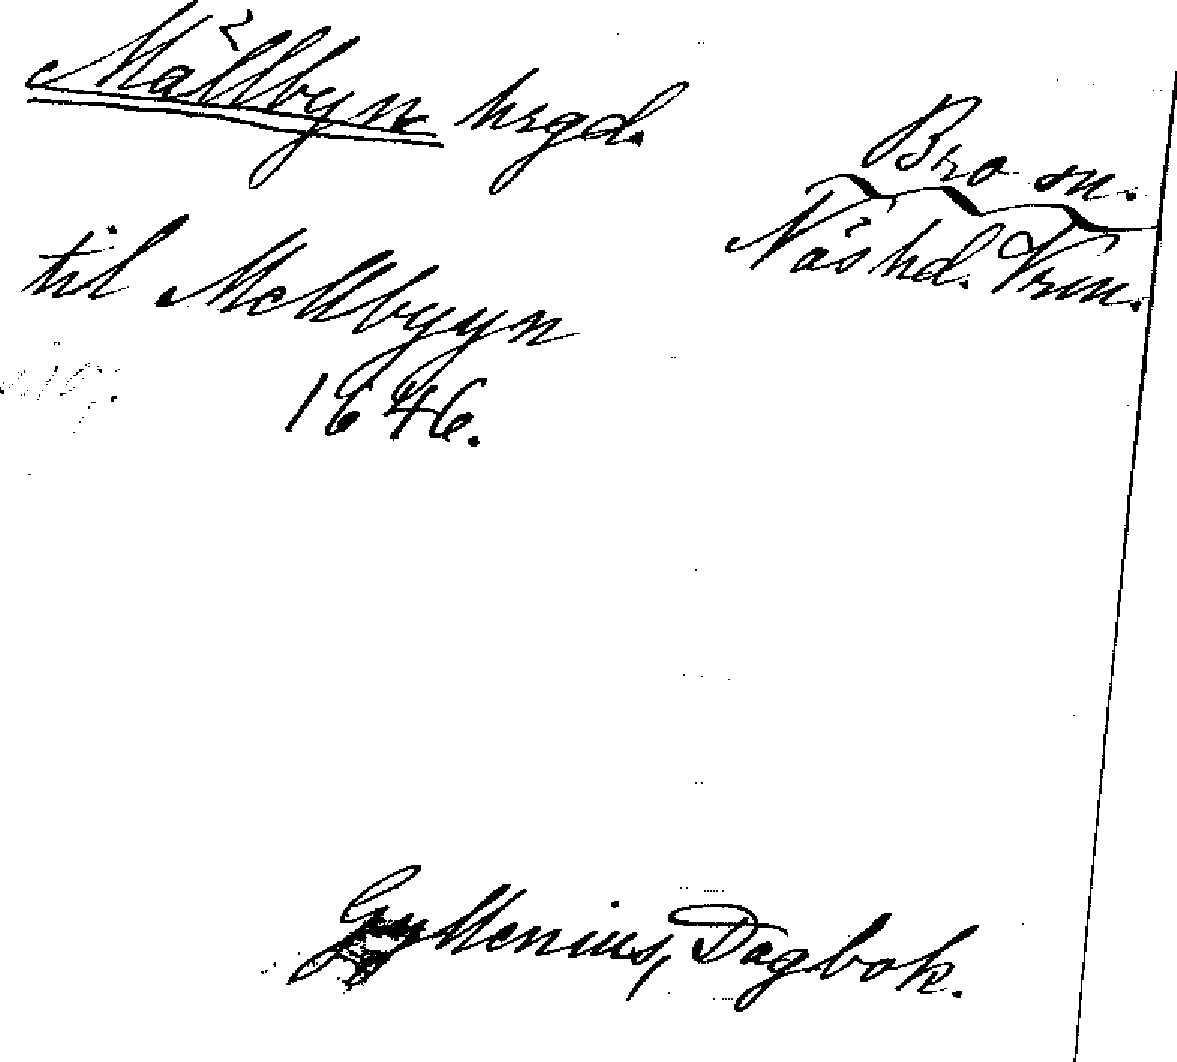 Mällbyn hrgd.
Bro sn.
Näs hd. Vrm.
til Mellbyyn
1646.
Gyllenius, Dagbok.